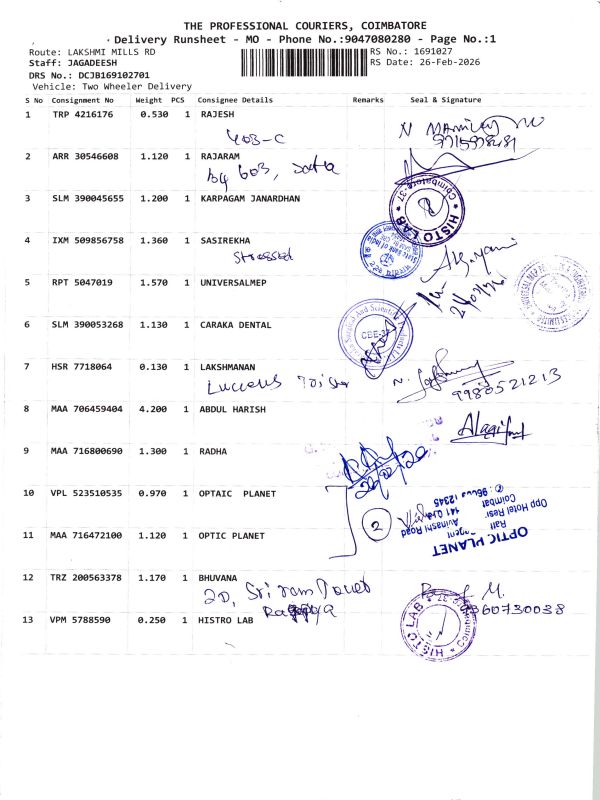 THE PROFESSIONAL COURIERS, COIMBATORE
Delivery Runsheet - MO - Phone No.:9047080280 - Page No.:1
Route: LAKSHMI MILLS RD
RS No.: 1691027
Staff: JAGADEESH
RS Date: 26-Feb-2026
DRS No.: DCJB169102701
Vehicle: Two Wheeler Delivery
S No Consignment No Weight PCS Consignee Details Remarks Seal & Signature
1 TRP 4216176 0.530 1 RAJESH
403-C
2 ARR 30546608 1.120 1 RAJARAM
603,
3 SLM 390045655 1.200 1 KARPAGAM JANARDHAN
Coimbatore-37
HISTO LAB
4 IXM 509856758 1.360 1 SASIREKHA
State Bank of India
5 RPT 5047019 1.570 1 UNIVERSALMEP
6 SLM 390053268 1.130 1 CARAKA DENTAL
CBE-37
7 HSR 7718064 0.130 1 LAKSHMANAN
9980521213
8 MAA 706459404 4.200 1 ABDUL HARISH
9 MAA 716800690 1.300 1 RADHA
10 VPL 523510535 0.970 1 OPTAIC PLANET
2
OPTIC PLANET
Opp Hotel Resi
Avinashi Road
Coimbat
11 MAA 716472100 1.120 1 OPTIC PLANET
12 TRZ 200563378 1.170 1 BHUVANA
2D, Sri ram
9360730038
13 VPM 5788590 0.250 1 HISTRO LAB
HISTO LAB